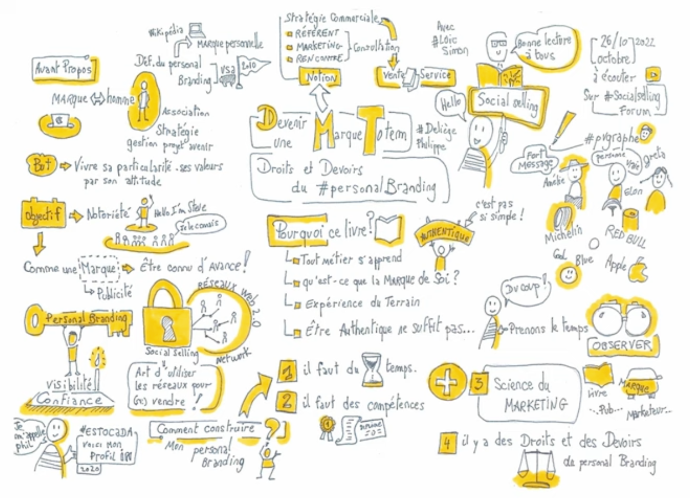 Avant Propos
MARQUE ⟺ homme
Wikipédia
MARQUE personnelle
Déf. du personal
Branding
USA
2010
Association
Stratégie
gestion projet avenir
But → Vivre sa particularité. ses valeurs
par son attitude
Objectif → Notoriété
Hello I'm Steve
Je le connais
Comme une Marque → Être connu d'Avance!
↳ Publicité
Personal Branding
Visibilité
Confiance
Social Selling
RÉSEAUX WEB 2.0
Network
Art d'utiliser
les réseaux pour
(se) vendre !
Je
m'appelle
phil
#ESTOCADA
Voici mon
Profil
2020
Comment construire ?
Mon personal
Branding
Stratégie Commerciale
RÉFÉRENT
MARKETING
RENCONTRE
Consultation
Notion
Vente Service
Devenir
une Marque Totem
#Deliège
Philippe
Droits et Devoirs
du #personalBranding
Pourquoi ce livre?
↳ Tout métier s'apprend
↳ qu'est-ce que la Marque de Soi ?
↳ Expérience du Terrain
↳ Être Authentique ne suffit pas...
AUTHENTIQUE
c'est pas
si simple !
1 il faut du temps.
2 il faut des compétences
Avec
#Loic
Simon
Bonne lecture
à tous
Hello
Social selling
26/10/2022
(octobre)
à écouter
Sur #Socialselling
Forum
#pvgraphe
Fort
MESSAGE
personne
Amélie
Greta
Elon
Michelin
RED BULL
Coal
Blue
Apple
Du coup !
→ Prenons le temps
OBSERVER
+ 3 Science du
MARKETING
livre
..Pub...
MARQUE
Marketeur...
4 il y a des Droits et des Devoirs
de personal Branding